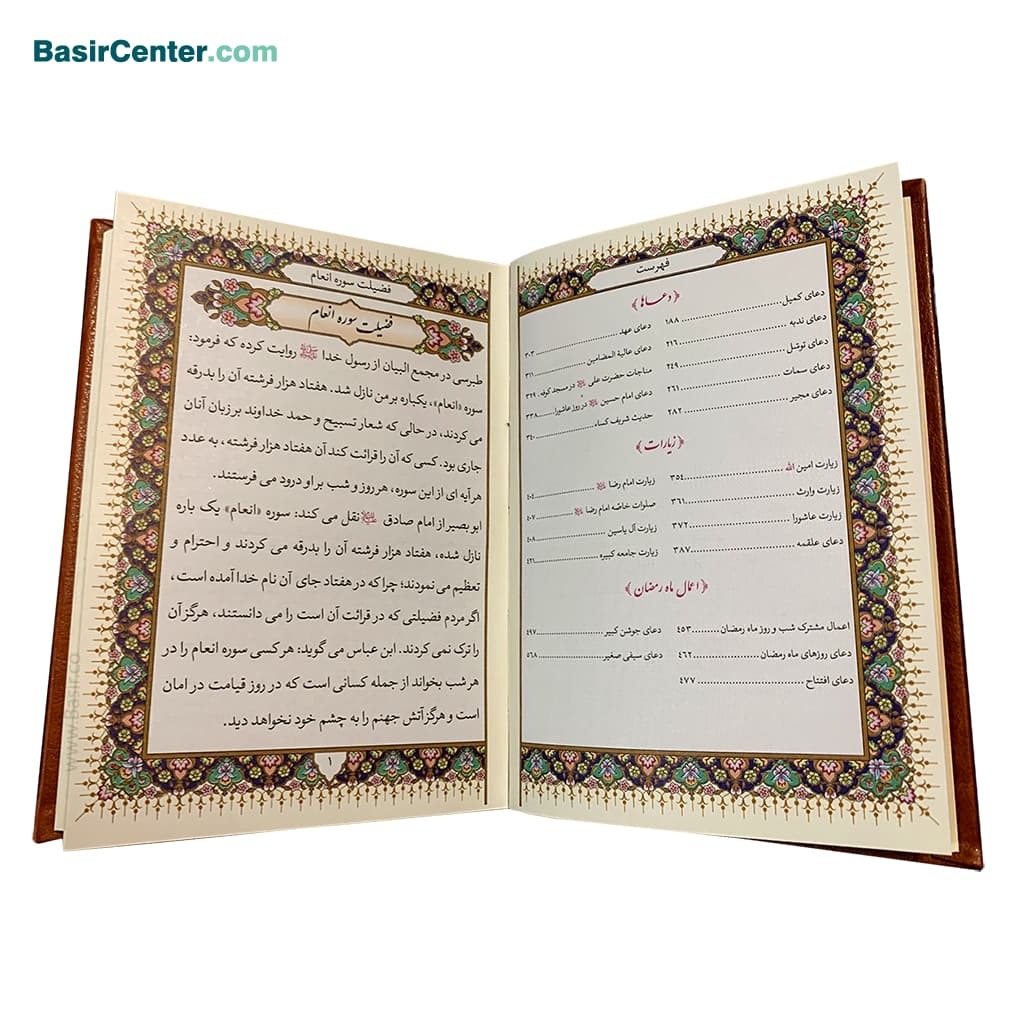 BasirCenter.com
فهرست
﴿دعاها﴾
دعای کمیل ........ ۱۸۸
دعای ندبه ........ ۲۱۶
دعای توسّل ........ ۲۴۹
دعای سمات ........ ۲۶۱
دعای مجیر ........ ۲۸۲
دعای عهد ........ ۳۰۳
دعای عالیة المضامین ........ ۳۱۱
مناجات حضرت علی در مسجد کوفه . ۳۲۹
دعای امام حسین در روز عاشورا ........ ۳۳۸
حدیث شریف کساء ........ ۳۴۰
﴿زیارات﴾
زیارت امین الله ........ ۳۵۴
زیارت وارث ........ ۳۶۱
زیارت عاشورا ........ ۳۷۲
دعای علقمه ........ ۳۸۷
زیارت امام رضا ........ ۴۰۴
صلوات خاصّه امام رضا ........ ۴۰۷
زیارت آل یاسین ........ ۴۰۸
زیارت جامعه کبیره ........ ۴۲۱
﴿اعمال ماه رمضان﴾
اعمال مشترک شب و روز ماه رمضان ........ ۴۵۳
دعای روزهای ماه رمضان ........ ۴۶۲
دعای افتتاح ........ ۴۷۷
دعای جوشن کبیر ........ ۴۹۷
دعای سیفی صغیر ........ ۵۶۸
فضیلت سوره انعام
فضیلت سوره انعام
طبرسی در مجمع البیان از رسول خدا ﷺ روایت کرده که فرمود:
سوره «انعام»، یکباره برمن نازل شد. هفتاد هزار فرشته آن را بدرقه
می کردند، در حالی که شعار تسبیح و حمد خداوند بر زبان آنان
جاری بود. کسی که آن را قرائت کند آن هفتاد هزار فرشته، به عدد
هر آیه ای از این سوره، هر روز و شب بر او درود می فرستند.
ابو بصیر از امام صادق نقل می کند: سوره «انعام» یک باره
نازل شده، هفتاد هزار فرشته آن را بدرقه می کردند و احترام و
تعظیم می نمودند؛ چرا که در هفتاد جای آن نام خدا آمده است،
اگر مردم فضیلتی که در قرائت آن است را می دانستند، هرگز آن
را ترک نمی کردند. ابن عباس می گوید: هر کسی سوره انعام را در
هر شب بخواند از جمله کسانی است که در روز قیامت در امان
است و هرگز آتش جهنم را به چشم خود نخواهد دید.
۱
www.Basir.co